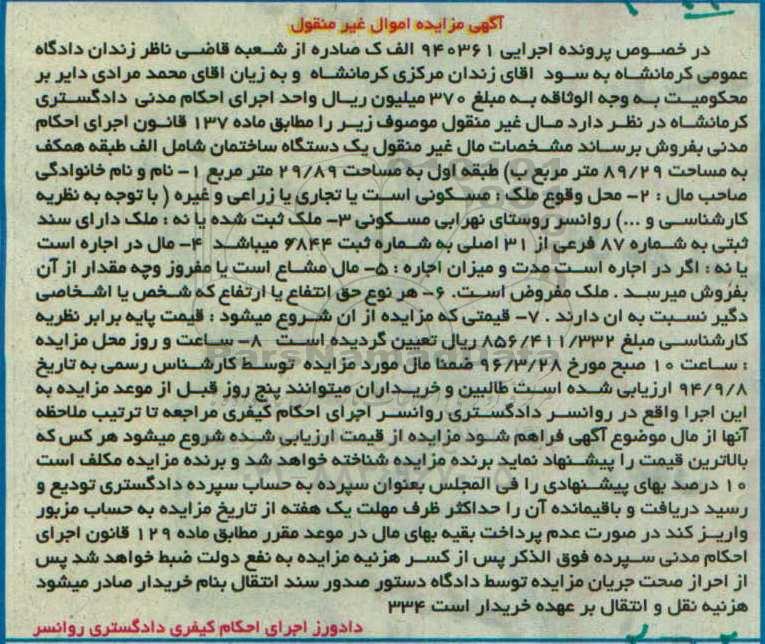 آگهی مزایده اموال غیر منقول
در خصوص پرونده اجرایی ۹۴۰۳۶۱ الف ک صادره از شعبه قاضی ناظر زندان دادگاه
عمومی کرمانشاه به سود آقای زندان مرکزی کرمانشاه و به زیان اقای محمد مرادی دایر بر
محکومیت به وجه الوثاقه به مبلغ ۳۷۰ میلیون ریال واحد اجرای احکام مدنی دادگستری
کرمانشاه در نظر دارد مال غیر منقول موصوف زیر را مطابق ماده ۱۳۷ قانون اجرای احکام
مدنی بفروش برساند مشخصات مال غیر منقول یک دستگاه ساختمان شامل الف طبقه همکف
به مساحت ۸۹/۲۹ متر مربع ب) طبقه اول به مساحت ۲۹/۸۹ متر مربع ۱- نام و نام خانوادگی
صاحب مال : ۲- محل وقوع ملک : مسکونی است یا تجاری یا زراعی و غیره ( با توجه به نظریه
کارشناسی و ...) روانسر روستای نهرابی مسکونی ۳- ملک ثبت شده یا نه : ملک دارای سند
ثبتی به شماره ۸۷ فرعی از ۳۱ اصلی به شماره ثبت ۶۸۴۴ میباشد ۴- مال در اجاره است
یا نه : اگر در اجاره است مدت و میزان اجاره : ۵- مال مشاع است یا مفروز وچه مقدار از آن
بفروش میرسد . ملک مفروض است. ۶- هر نوع حق انتفاع یا ارتفاع که شخص یا اشخاصی
دگیر نسبت به ان دارند . ۷- قیمتی که مزایده از ان شروع میشود : قیمت پایه برابر نظریه
کارشناسی مبلغ ۸۵۶/۴۱۱/۳۳۲ ریال تعیین گردیده است ۸- ساعت و روز محل مزایده
: ساعت ۱۰ صبح مورخ ۹۶/۳/۲۸ ضمنا مال مورد مزایده توسط کارشناس رسمی به تاریخ
۹۴/۹/۸ ارزیابی شده است طالبین و خریداران میتوانند پنج روز قبل از موعد مزایده به
این اجرا واقع در روانسر دادگستری روانسر اجرای احکام کیفری مراجعه تا ترتیب ملاحظه
آنها از مال موضوع آگهی فراهم شود مزایده از قیمت ارزیابی شده شروع میشود هر کس که
بالاترین قیمت را پیشنهاد نماید برنده مزایده شناخته خواهد شد و برنده مزایده مکلف است
۱۰ درصد بهای پیشنهادی را فی المجلس بعنوان سپرده به حساب سپرده دادگستری تودیع و
رسید دریافت و باقیمانده آن را حداکثر ظرف مهلت یک هفته از تاریخ مزایده به حساب مزبور
واریز کند در صورت عدم پرداخت بقیه بهای مال در موعد مقرر مطابق ماده ۱۲۹ قانون اجرای
احکام مدنی سپرده فوق الذکر پس از کسر هزنیه مزایده به نفع دولت ضبط خواهد شد پس
از احراز صحت جریان مزایده توسط دادگاه دستور صدور سند انتقال بنام خریدار صادر میشود
هزنیه نقل و انتقال بر عهده خریدار است ۳۳۴
دادورز اجرای احکام کیفری دادگستری روانسر